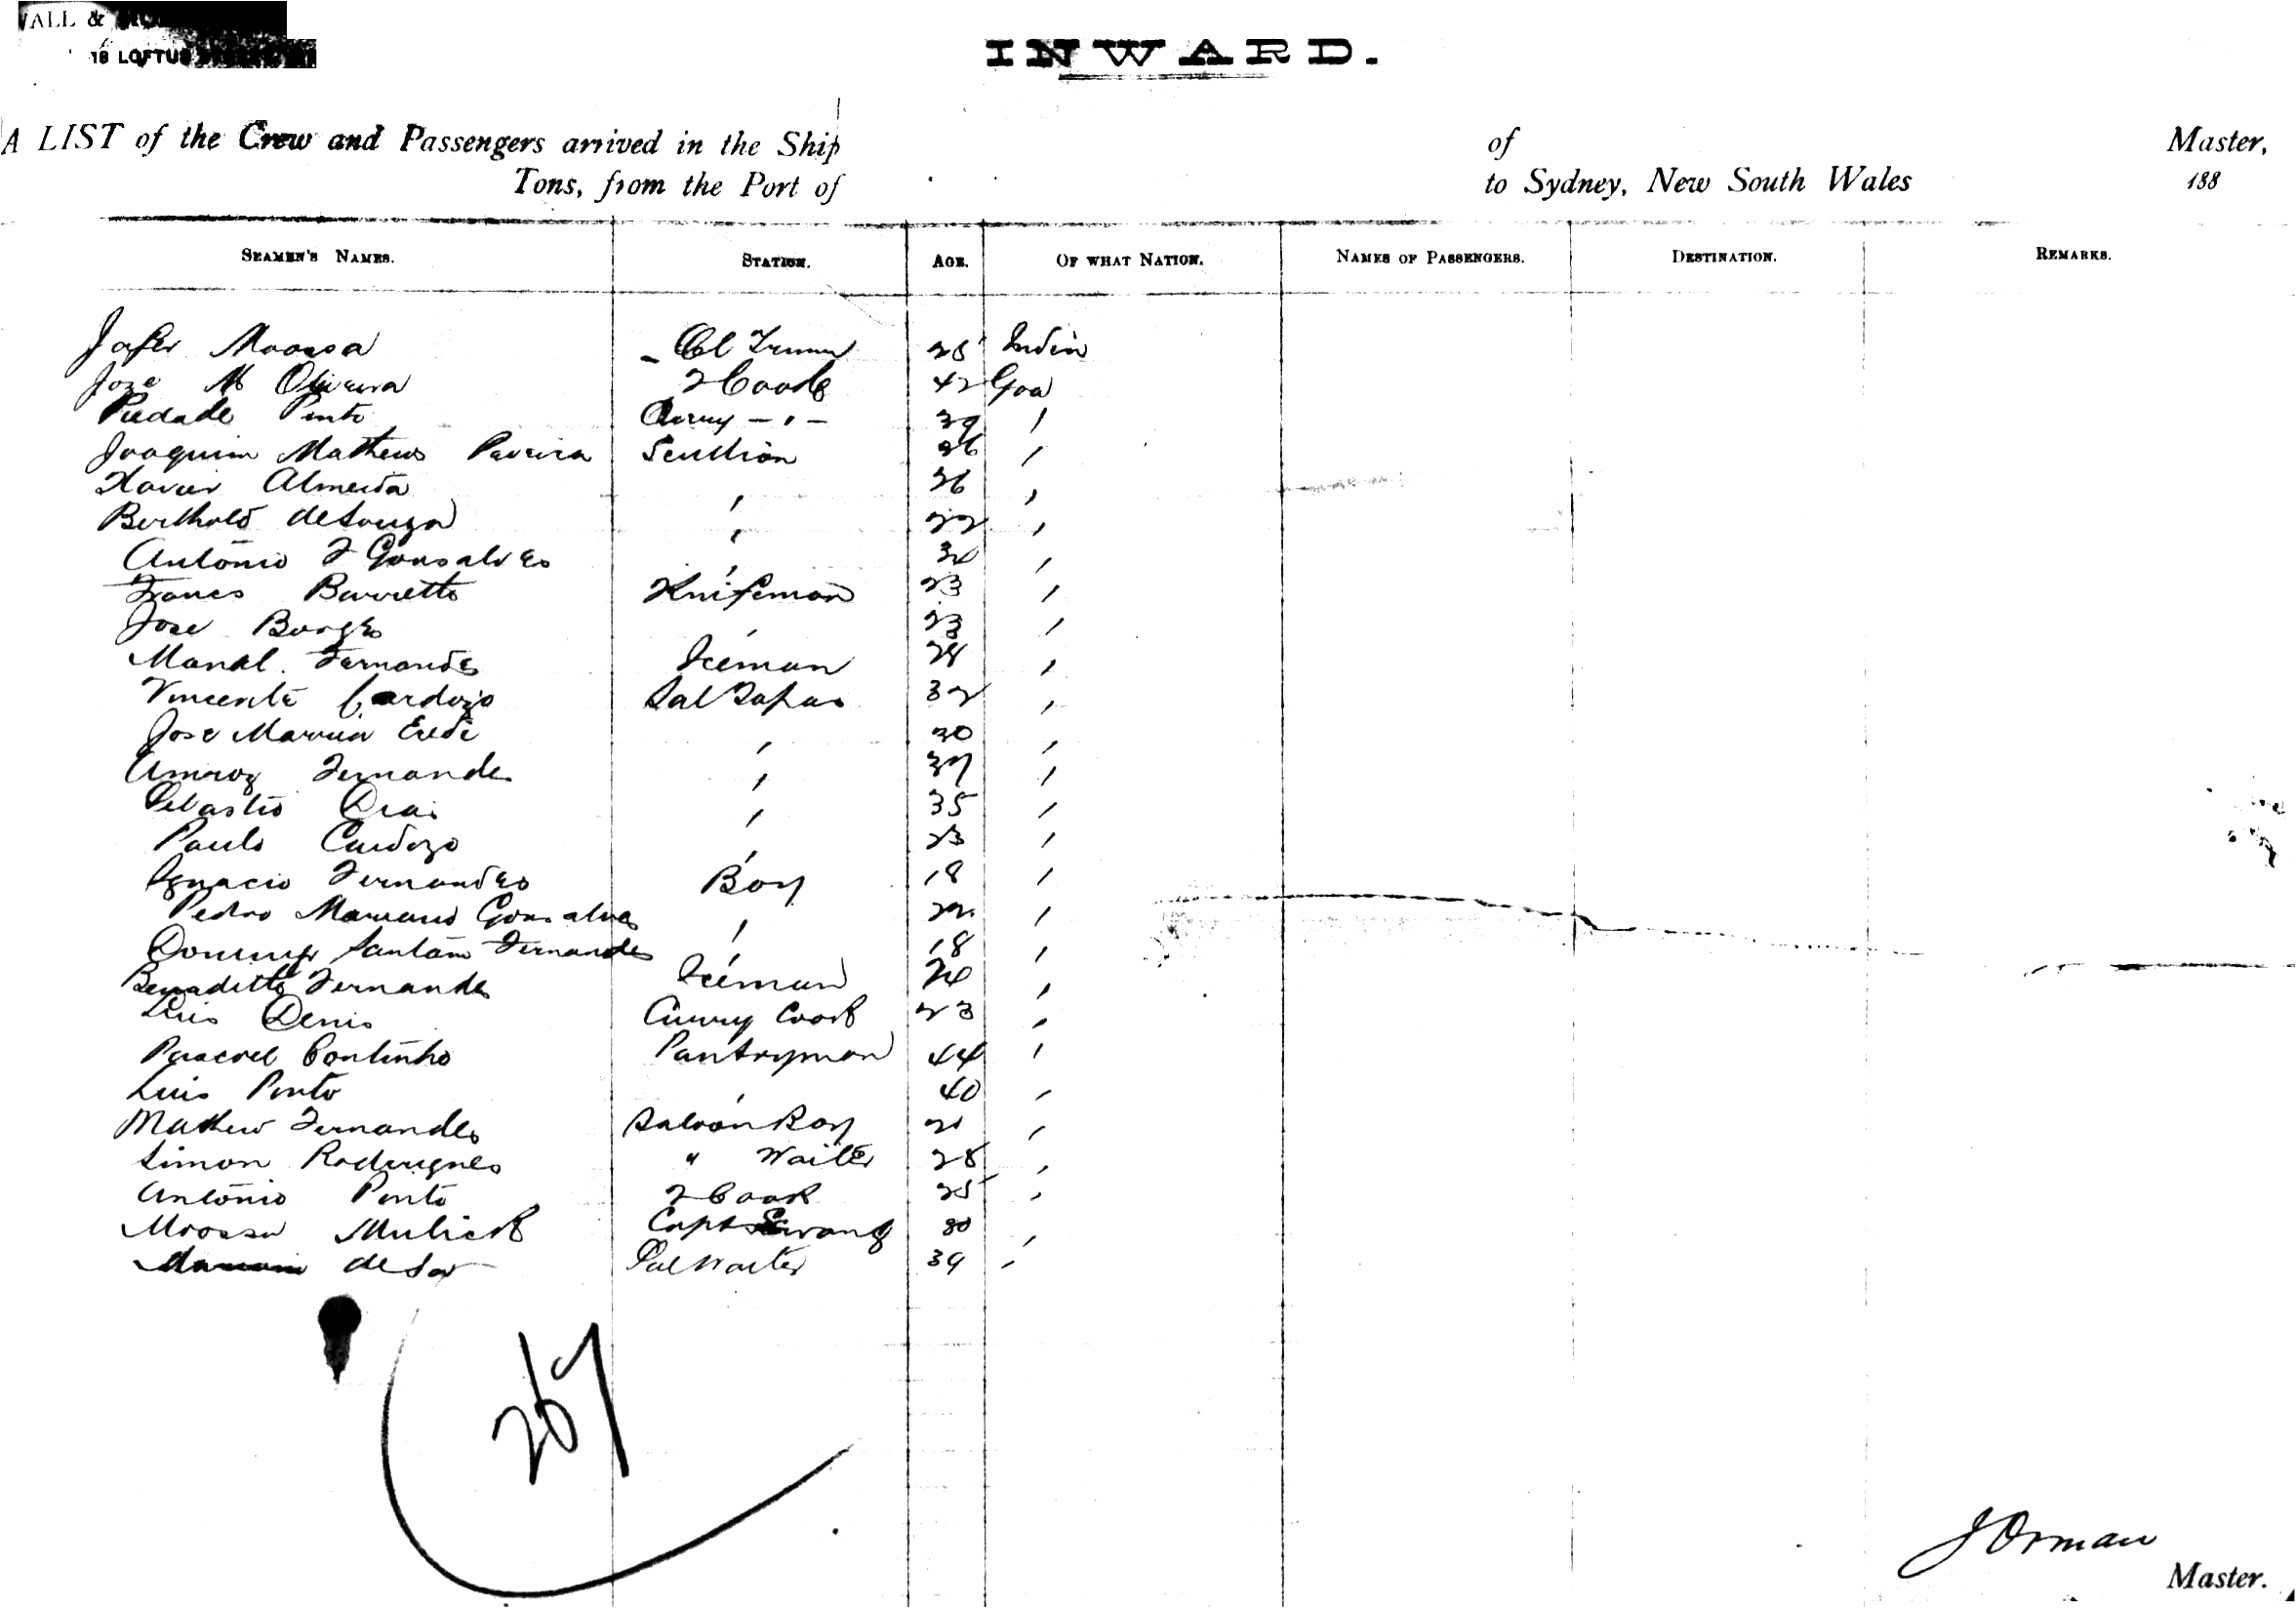 WALL &
18 LOFTUS
INWARD.
A LIST of the Crew and Passengers arrived in the Ship of Master,
Tons, from the Port of to Sydney, New South Wales 188
SEAMEN'S NAMES. STATION. AGE. OF WHAT NATION. NAMES OF PASSENGERS. DESTINATION. REMARKS.
Jafer Moossa 25 India
Joze M Oliveira 2 Cook 42 Goa
Piedade Pinto Curry — " — 39 "
Joaquim Mathews Pereira Scullion 26 "
Xavier Almeida " 26 "
Berthold deSouza " 22 "
Antonio F Gonsalves "
Barretto Knifeman 23 "
Jose Borges " 23 "
Fernandes Iceman "
Vincente Cardozo 32 "
Jose " 30 "
Fernandes " 37 "
" 35 "
Paulo Cardozo " 23 "
Ignacio Fernandes Boy 18 "
Pedro Mariano Gonsalves " 22 "
Fernandes " 18 "
Benaditto Fernandes Iceman "
Luis Denis Curry Cook 23 "
Coutinho Pantryman 44 "
Luis Pinto " 40 "
Mathew Fernandes Saloon Boy "
Simon Roderigues " Waiter 28 "
Antonio Pinto 2 Cook 25 "
Moossa Capt "
de Sa Waiter 39 "
267
J Orman
Master.